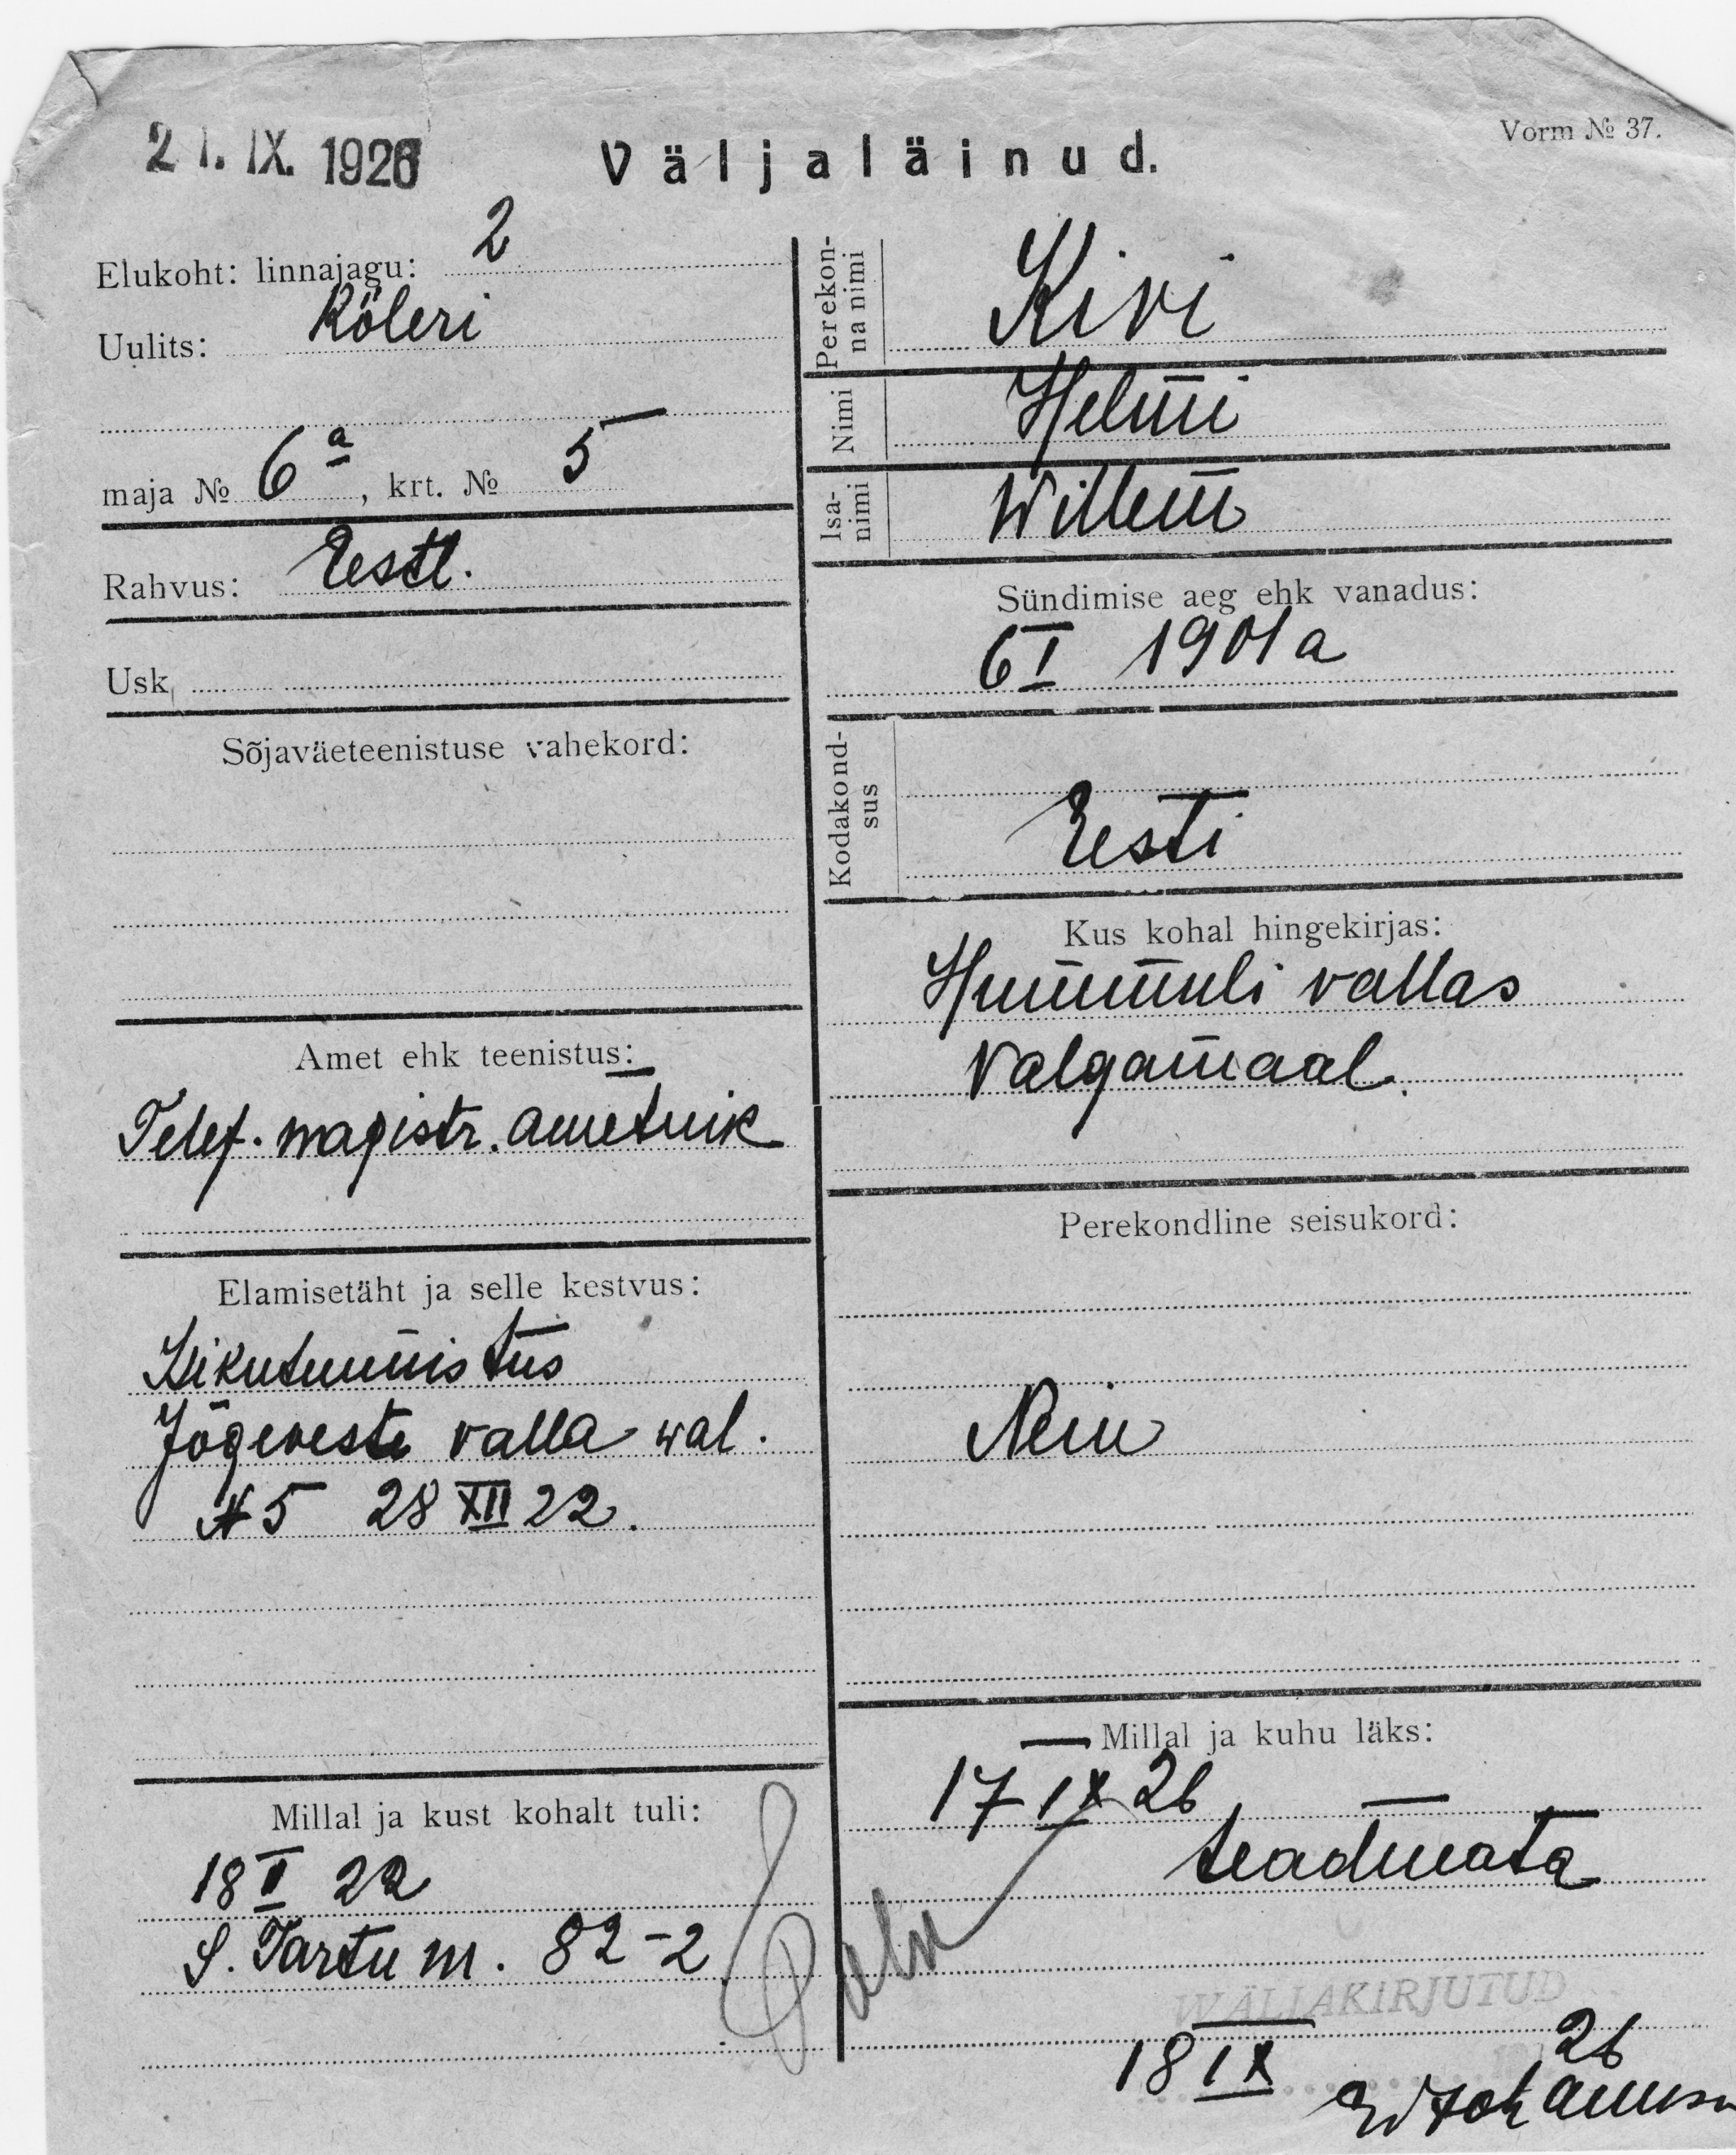 21. IX. 1926
Väljaläinud.
Vorm № 37.
Elukoht: linnajagu: 2
Uulits: Köleri
maja № 6ª, krt. № 5
Rahvus: Eestl.
Usk
Sõjaväeteenistuse vahekord:
Amet ehk teenistus:
Telef. magistr. ametnik
Elamisetäht ja selle kestvus:
Isikutunnistus
Jõgeveste valla wal.
№ 5 28 XII 22.
Millal ja kust kohalt tuli:
18 II 22
S. Tartu m. 82-2
Perekon-
na nimi
Kivi
Nimi
Helmi
Isa-
nimi
Willem
Sündimise aeg ehk vanadus:
6 I 1901 a
Kodakond-
sus
Eesti
Kus kohal hingekirjas:
Hummuli vallas
Valgamaal.
Perekondline seisukord:
Neiu
Millal ja kuhu läks:
17 IX 26
teadmata
WÄLJAKIRJUTUD
18 IX 26